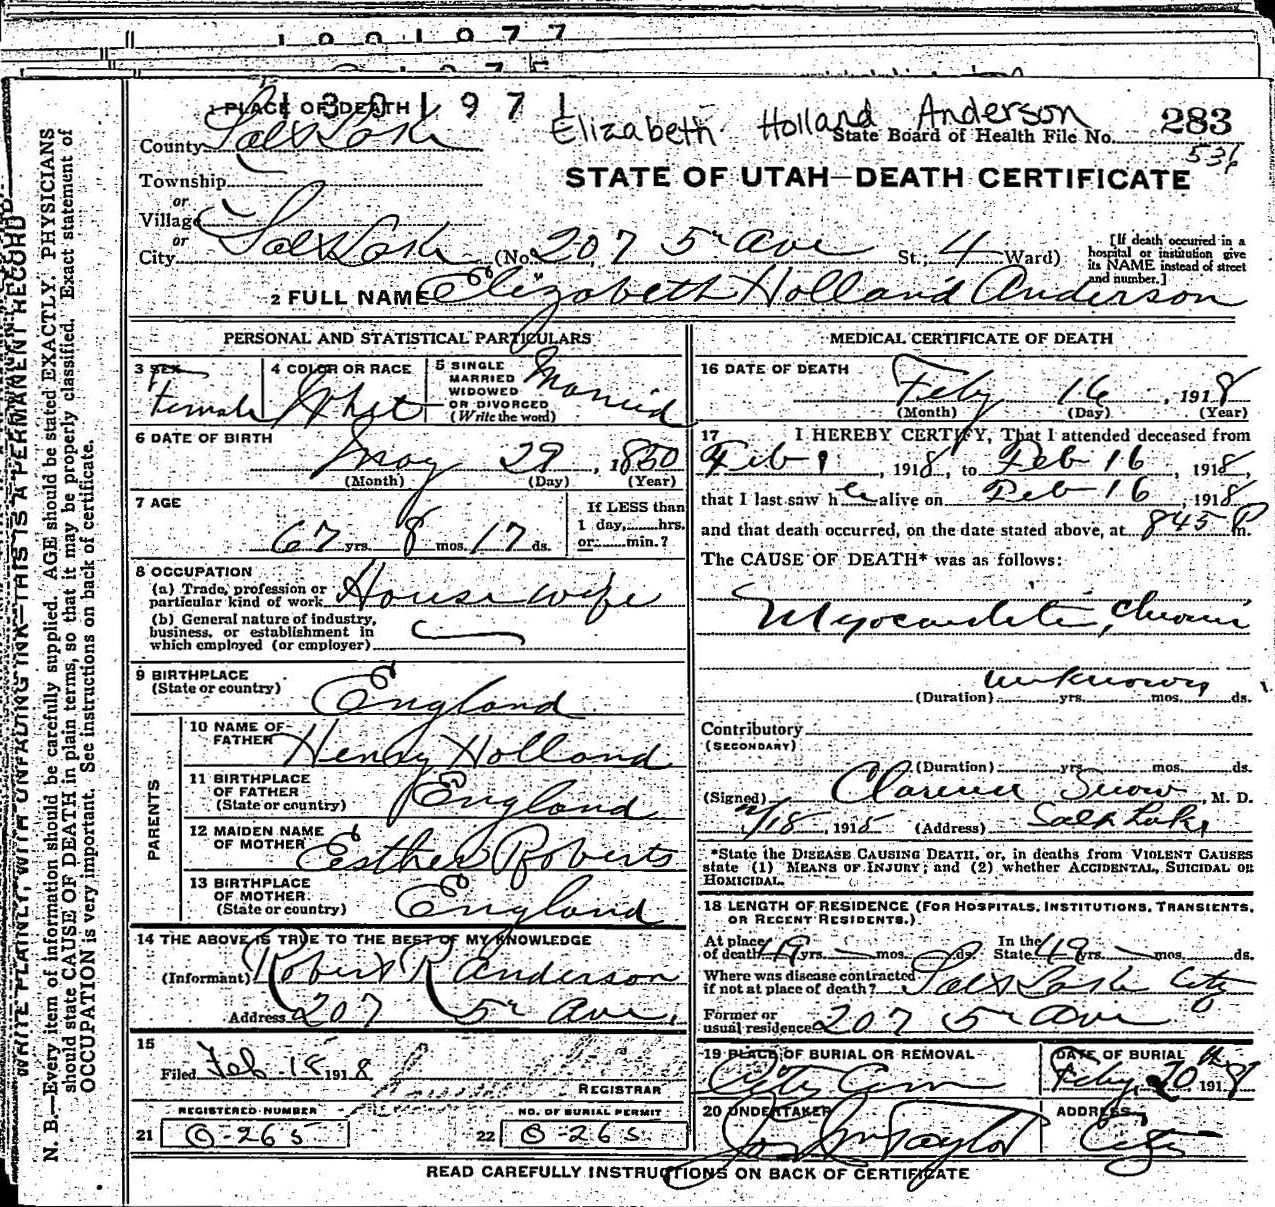 1301971
Elizabeth Holland Anderson
1 PLACE OF DEATH
County Salt Lake
State Board of Health File No. 283
536
Township
or
Village
or
STATE OF UTAH—DEATH CERTIFICATE
City Salt Lake (No. 207 5th Ave St.; 4 Ward)
[If death occurred in a hospital or institution give its NAME instead of street and number.]
2 FULL NAME Elizabeth Holland Anderson
PERSONAL AND STATISTICAL PARTICULARS
3 SEX
Female
4 COLOR OR RACE
5 SINGLE
MARRIED
WIDOWED
OR DIVORCED
(Write the word)
Married
6 DATE OF BIRTH
May 29, 1850
(Month) (Day) (Year)
7 AGE
67 yrs. 8 mos. 17 ds.
If LESS than
1 day, hrs.
or min.?
8 OCCUPATION
(a) Trade, profession or
particular kind of work House wife
(b) General nature of industry,
business, or establishment in
which employed (or employer)
9 BIRTHPLACE
(State or country) England
PARENTS
10 NAME OF
FATHER Henry Holland
11 BIRTHPLACE
OF FATHER
(State or country) England
12 MAIDEN NAME
OF MOTHER Esther Roberts
13 BIRTHPLACE
OF MOTHER
(State or country) England
14 THE ABOVE IS TRUE TO THE BEST OF MY KNOWLEDGE
(Informant) Robert R Anderson
Address 207 5th Ave.
15
Filed Feb 18 1918
REGISTRAR
REGISTERED NUMBER
21 O-265
NO. OF BURIAL PERMIT
22 O-265
MEDICAL CERTIFICATE OF DEATH
16 DATE OF DEATH
Feby 16, 1918
(Month) (Day) (Year)
17 I HEREBY CERTIFY, That I attended deceased from
Feb 1, 1918, to Feb 16, 1918,
that I last saw her alive on Feb 16, 1918
and that death occurred, on the date stated above, at 845 P m.
The CAUSE OF DEATH* was as follows:
Myocarditis, Chronic
unknown
(Duration) yrs. mos. ds.
Contributory
(SECONDARY)
(Duration) yrs. mos. ds.
(Signed) Clarence Snow, M. D.
2/18, 1918 (Address) Salt Lake
*State the DISEASE CAUSING DEATH, or, in deaths from VIOLENT CAUSES
state (1) MEANS OF INJURY; and (2) whether ACCIDENTAL, SUICIDAL OR
HOMICIDAL.
18 LENGTH OF RESIDENCE (FOR HOSPITALS, INSTITUTIONS, TRANSIENTS,
OR RECENT RESIDENTS.)
At place
of death 49 yrs. mos. ds.
In the
State 49 yrs. mos. ds.
Where was disease contracted
if not at place of death? Salt Lake City
Former or
usual residence 207 5th Ave
19 PLACE OF BURIAL OR REMOVAL
City Cem
DATE OF BURIAL
Feby 20th 1918
20 UNDERTAKER
Jos Wm Taylor
ADDRESS
City
READ CAREFULLY INSTRUCTIONS ON BACK OF CERTIFICATE
WRITE PLAINLY, WITH UNFADING INK—THIS IS A PERMANENT RECORD
N. B.—Every item of information should be carefully supplied. AGE should be stated EXACTLY. PHYSICIANS
should state CAUSE OF DEATH in plain terms, so that it may be properly classified. Exact statement of
OCCUPATION is very important. See instructions on back of certificate.